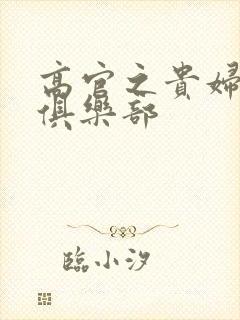 高官之貴婦
俱樂部
臨小汐